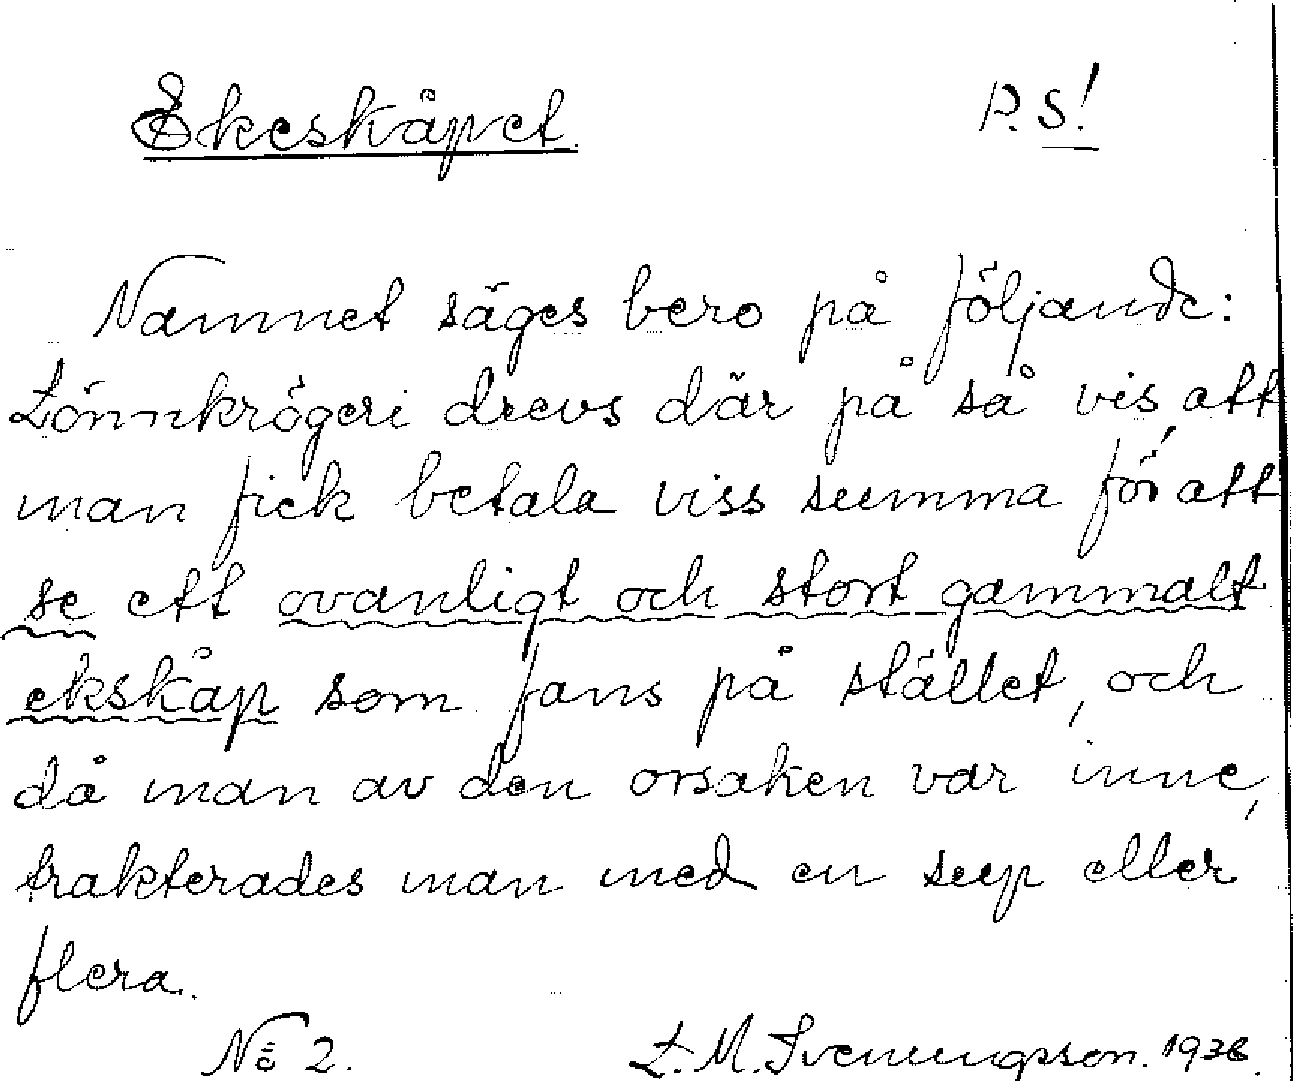 Ekeskåpet. P.S!
Namnet säges bero på följande:
Lönnkrögeri drevs där på så vis att
man fick betala viss summa för att
se ett ovanligt och stort gammalt
ekskåp som fans på stället, och
då man av den orsaken var inne,
trakterades man med en sup eller
flera.
No 2. L. M. Svenungsson.